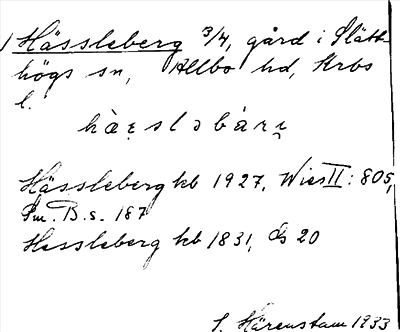 Hässleberg 3/4, gård i Slätt-
högs sn, Allbo hd, Krbs
l.
hæ̀slǝbár̨i̯
Hässleberg kb 1927, Wies II: 805,
Sm. B. s. 187
Hessleberg kb 1831, GS 20
S. Härenstam 1933